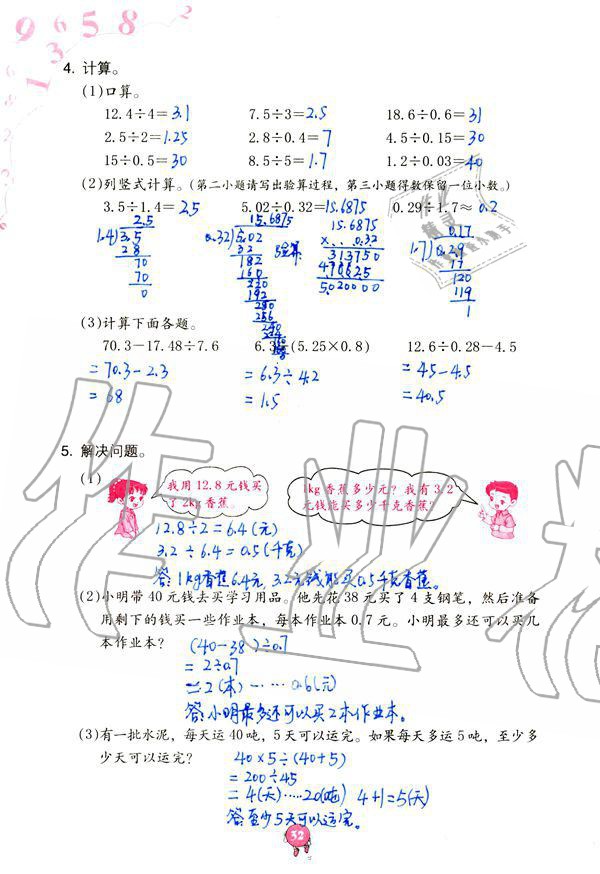 9 6 5 8
1 3
4. 计算。
(1)口算。
12.4÷4=3.1 7.5÷3=2.5 18.6÷0.6=31
2.5÷2=1.25 2.8÷0.4=7 4.5÷0.15=30
15÷0.5=30 8.5÷5=1.7 1.2÷0.03=40
(2)列竖式计算。(第二小题请写出验算过程，第三小题得数保留一位小数。)
3.5÷1.4=2.5 5.02÷0.32=15.6875 0.29÷1.7≈0.2
2.5 15.6875 15.6875 0.17
1.4)3.5 0.32)5.02 验算 ×...0.32 1.7)0.29
28 32 313750 17
70 182 470625 120
70 160 5.020000 119
0 220 1
192
280
256
240
(3)计算下面各题。
70.3-17.48÷7.6 6.3÷(5.25×0.8) 12.6÷0.28-4.5
=70.3-2.3 =6.3÷4.2 =45-4.5
=68 =1.5 =40.5
5. 解决问题。
(1)
我用12.8元钱买
了2kg香蕉。
1kg香蕉多少元？我有3.2
元钱能买多少千克香蕉？
12.8÷2=6.4(元)
3.2÷6.4=0.5(千克)
答:1kg香蕉6.4元,3.2元钱能买0.5千克香蕉。
(2)小明带40元钱去买学习用品。他先花38元买了4支钢笔，然后准备
用剩下的钱买一些作业本，每本作业本0.7元。小明最多还可以买几
本作业本？ (40-38)÷0.7
=2÷0.7
=2(本)……0.6(元)
答:小明最多还可以买2本作业本。
(3)有一批水泥，每天运40吨，5天可以运完。如果每天多运5吨，至少多
少天可以运完？ 40×5÷(40+5)
=200÷45
=4(天)……20(吨) 4+1=5(天)
答:至少5天可以运完。
32
作业精